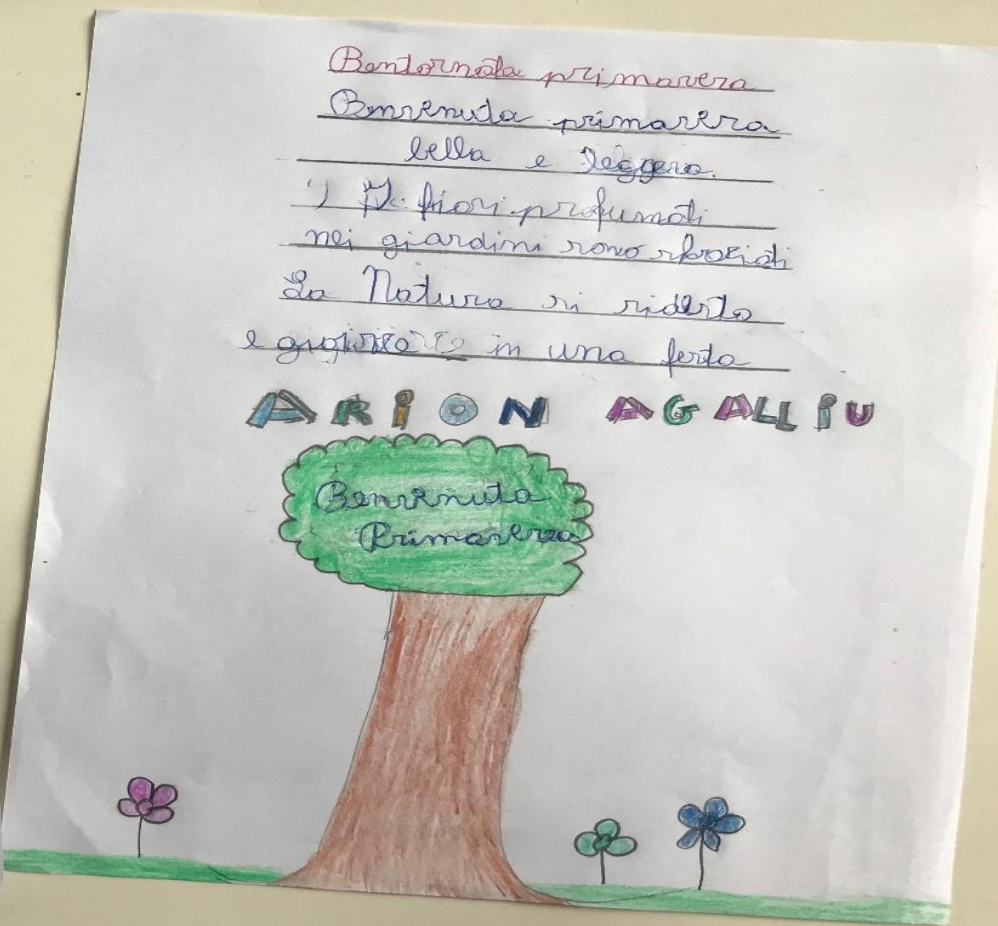 Bentornata primavera
Benvenuta primavera
bella e leggera.
fiori profumati
nei giardini sono sbociati
La Natura si ridesta
e in una festa
ARiON AGALLiU
Benvenuta
Primavera